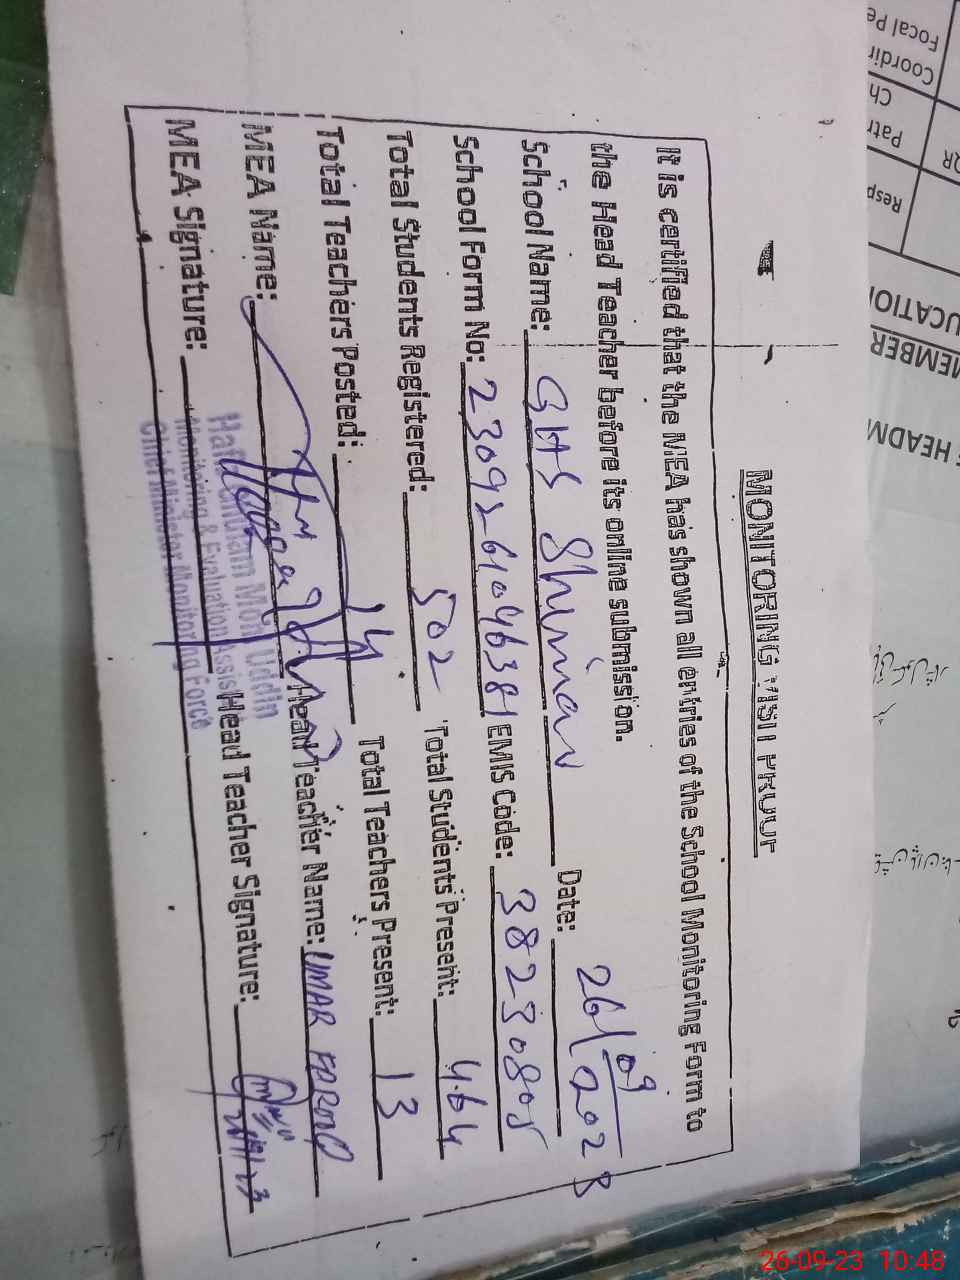 MONITORING VISIT PROOF
It is certified that the MEA has shown all entries of the School Monitoring Form to
the Head Teacher before its online submission.
School Name: GHS Shinian Date: 26/09/2023
School Form No: EMIS Code: 38230805
Total Students Registered: 502 Total Students Present: 464
Total Teachers Posted: 14 Total Teachers Present: 13
MEA Name: Head Teacher Name: UMAR FAROOQ
MEA Signature: Head Teacher Signature:
Hafiz Ghulam Moh Uddin
Monitoring & Evaluation Assistant
Chief Minister Monitoring Force
Focal Pe
Coordin
Ch
Patr
Resp
UCATION
MEMBER
HEADM
26-09-23 10:48